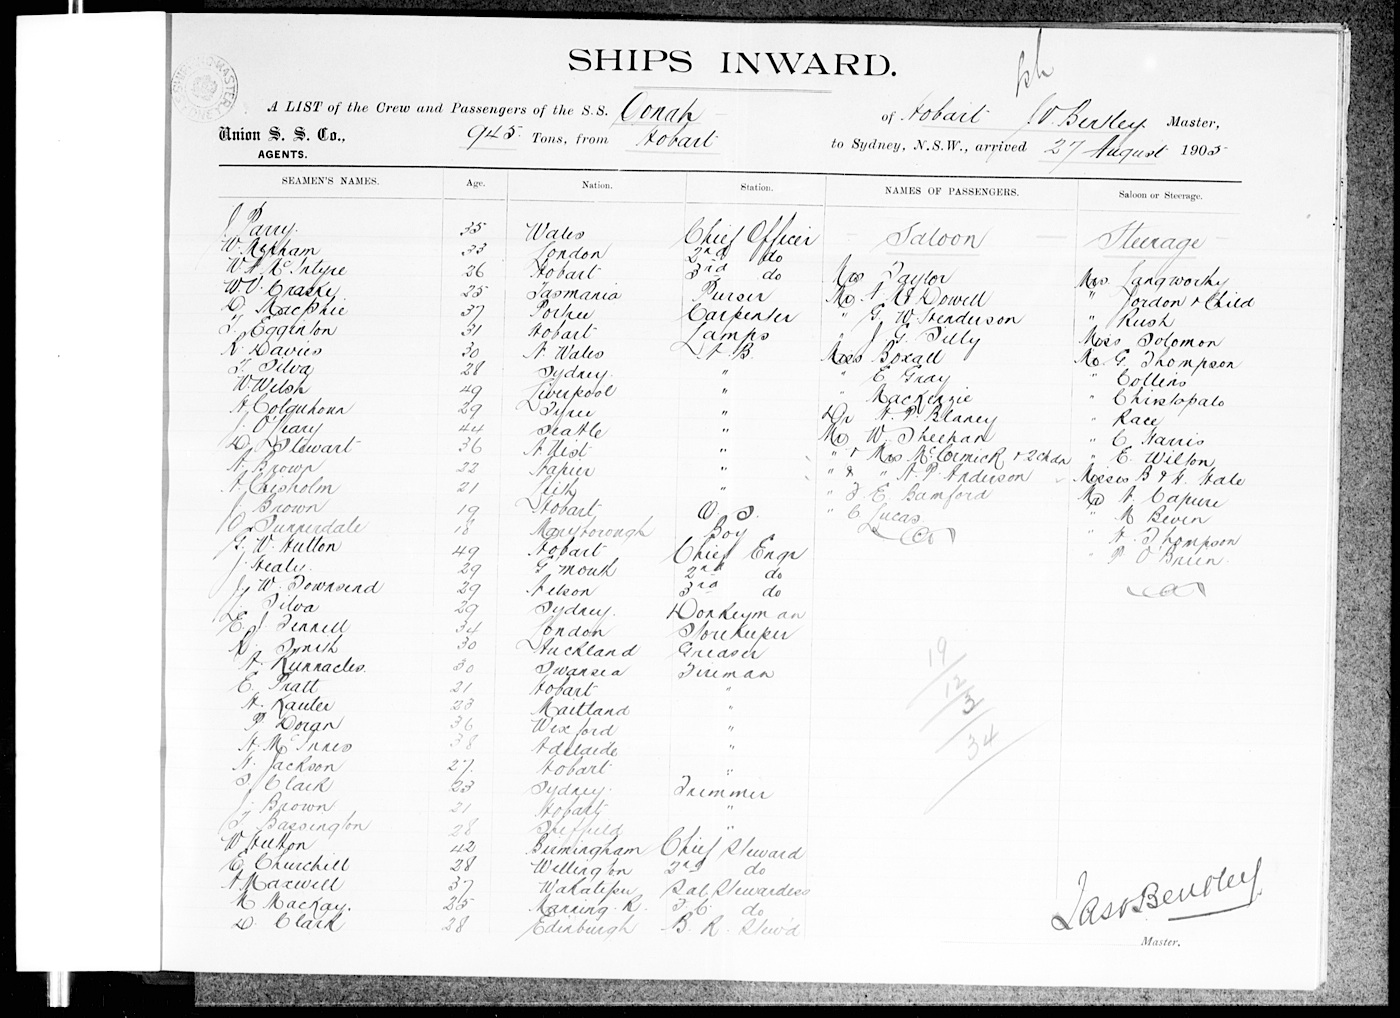 SHIPS INWARD.
A LIST of the Crew and Passengers of the S.S. Oonah of Hobart J V Bentley Master,
Union S. S. Co., AGENTS. 945 Tons, from Hobart to Sydney, N.S.W., arrived 27 August 1905
SEAMEN'S NAMES. Age. Nation. Station. NAMES OF PASSENGERS. Saloon or Steerage.
J Parry 35 Wales Chief Officer Saloon Steerage
W. 33 London 2nd do
W. A. McIntyre 26 Hobart 3rd do Mrs Taylor Mrs Langworthy
W. V. 25 Tasmania Purser Mr A McDowell " Jordon & Child
D. MacPhie 37 Carpenter " G. W. Henderson " Rush
T. Egginton 31 Hobart Lamps " J G. Tilly Miss Solomon
R Davies 30 N. Wales A B Miss Boxall Mr G. Thompson
T Silva 28 Sydney " " E Gray " Collins
W Welsh 49 Liverpool " " MacKenzie " Christopalo
A Colquhoun 29 " Dr A. P. Blaney " Race
J O'Leary 44 Seattle " Mr W. Sheehan " C Harris
D. Stewart 36 N Uist " " & Mrs McCormick & 2 chdn " E. Wilton
A. Brown 22 Napier " " & " A. P. Anderson Misses B & A. Hale
A Chisholm 21 Leith " " F E Bamford Mr A Capurre
J Brown 19 Hobart O. S. " C Lucas " M Beven
18 Maryborough Boy " A. Thompson
G. W. Hutton 49 Hobart Chief Engr " P O'Brien
J. Healy 29 G'mouth 2nd do
J. W. Townsend 29 Nelson 3rd do
J. Silva 29 Sydney. Donkeyman
E. J. Fennell 34 London Storekeeper
R. Smith 30 Auckland Greaser
A. Runnacles 30 Swansea Fireman
E Pratt 21 Hobart "
A. Lauter 23 Maitland "
P Doran 36 Wexford "
A. McInnes 38 Adelaide "
A. Jackson 27. Hobart "
S Clark 23 Sydney. Trimmer
J. Brown 21 Hobart "
T Bassington 28 Sheffield "
W Hutton 42 Birmingham Chief Steward
E Churchill 28 Wellington 2nd do
A Maxwell 37 Sal Stewardess
M MacKay. 25 Manning R. F. C. do
D. Clark 28 Edinburgh B. R. Stew'd
19
12
3
34
Jas V Bentley
Master.